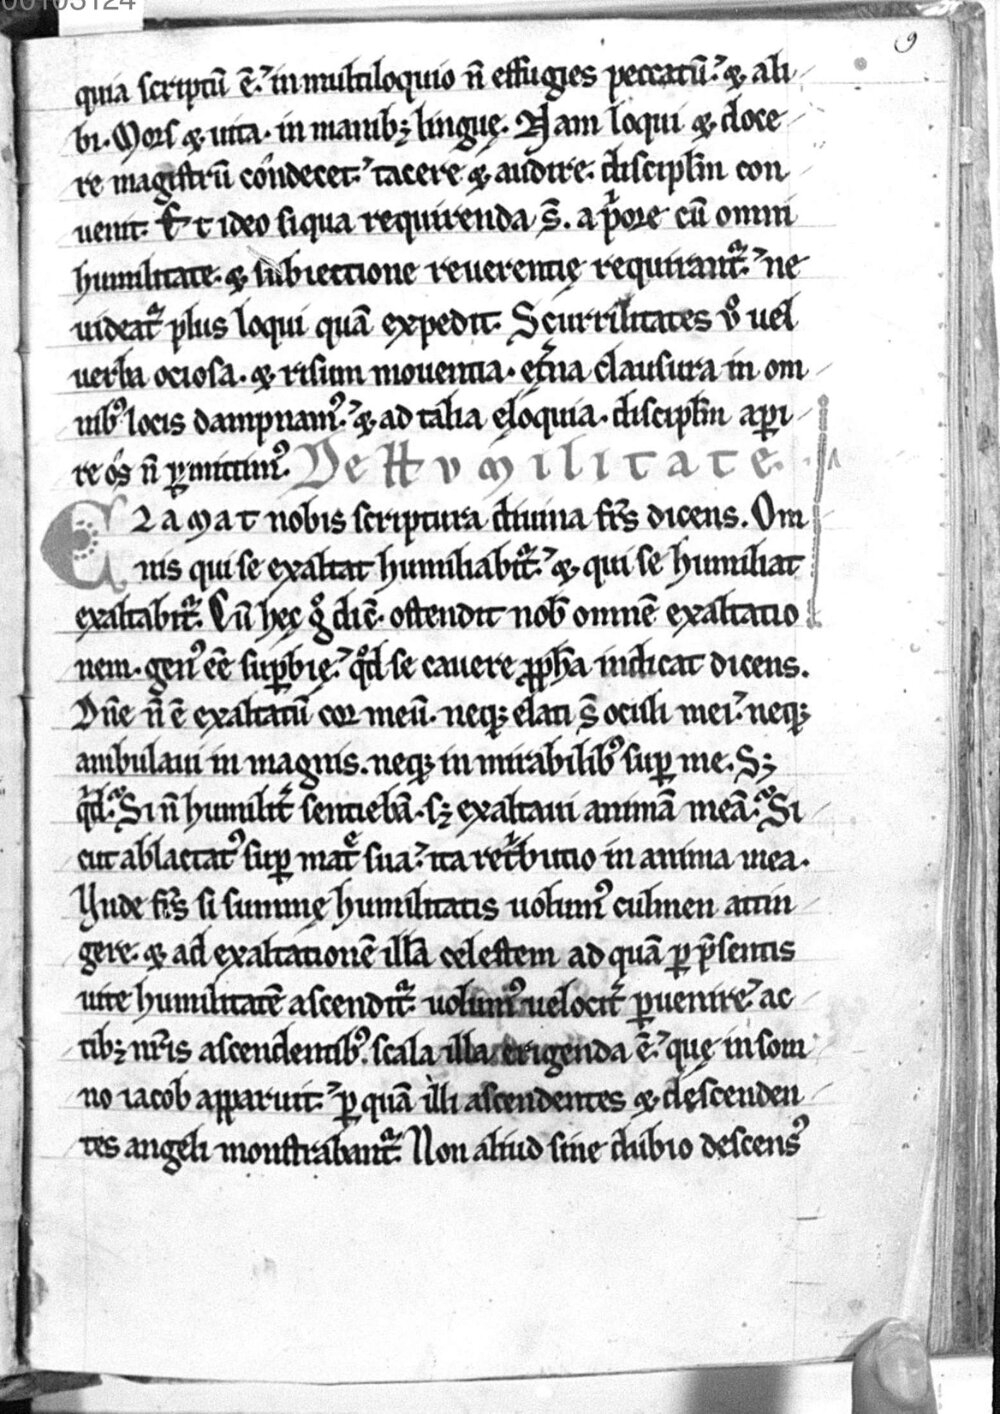 00103124
9
quia scriptū ē. in multiloquio n̄ effugies peccatū. & ali
bi. Mors & uita. in manibꝫ linguę. Nam loqui & doce
re magistrū condecet. tacere & audire. discipl̄m con
uenit. Et ideo siqua requirenda s̄. a p̄ore cū omni
humilitate. & subiectione reuerentię requirant᷑. ne
uideat᷑ plus loqui quā expedit. Scurrilitates ů uel
uerba ociosa. & risum mouentia. et̄na clausura in om
nibꝰ locis dampnamꝰ. & ad talia eloquia. discipl̄m aꝑi
re os n̄ ꝑmittimꝰ. De Humilitate.
Clamat nobis scriptura diuina fr̄s dicens. Om
nis qui se exaltat humiliabit᷑. & qui se humiliat
exaltabit᷑. Cū hęc g̊ dic̄. ostendit nob̄ omnē exaltatio
nem. genꝰ eē suꝑbię. qd̄ se cauere ꝓph̄a indicat dicens.
Dn̄e n̄ ē exaltatū cor meū. neqꝫ elati s̄ oculi mei. neqꝫ
ambulaui in magnis. neqꝫ in mirabilibꝰ suꝑ me. Sꝫ
qͥd. Si n̄ humilit̄ sentiebā. sꝫ exaltaui animā meā. Si
cut ablactatꝰ suꝑ matͤ sua. ita ret̄butio in anima mea.
Unde fr̄s si summę humilitatis uolumꝰ culmen attin
gere. & ad exaltationē illā celestem ad quā ꝑ p̄sentis
uite humilitatē ascendit᷑. uolumꝰ uelocit̄ ꝑuenire. ac
tibꝫ nr̄is ascendentibꝰ. scala illa erigenda ē. quę in som
no iacob apparuit. ꝑ quā illi ascendentes & descenden
tes angeli monstrabant᷑. Non aliud sine dubio descensꝰ